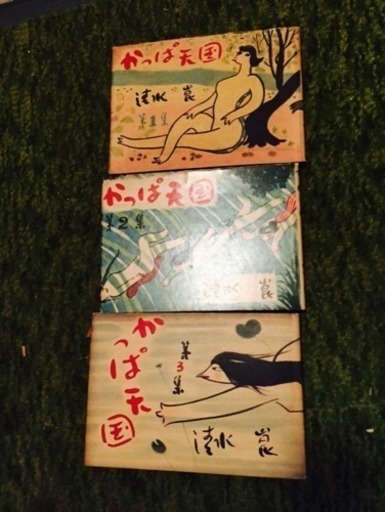 かっぱ天国
清水 崑
第1集
かっぱ天国
第2集
清水 崑
かっぱ天国
第3集
清水 崑